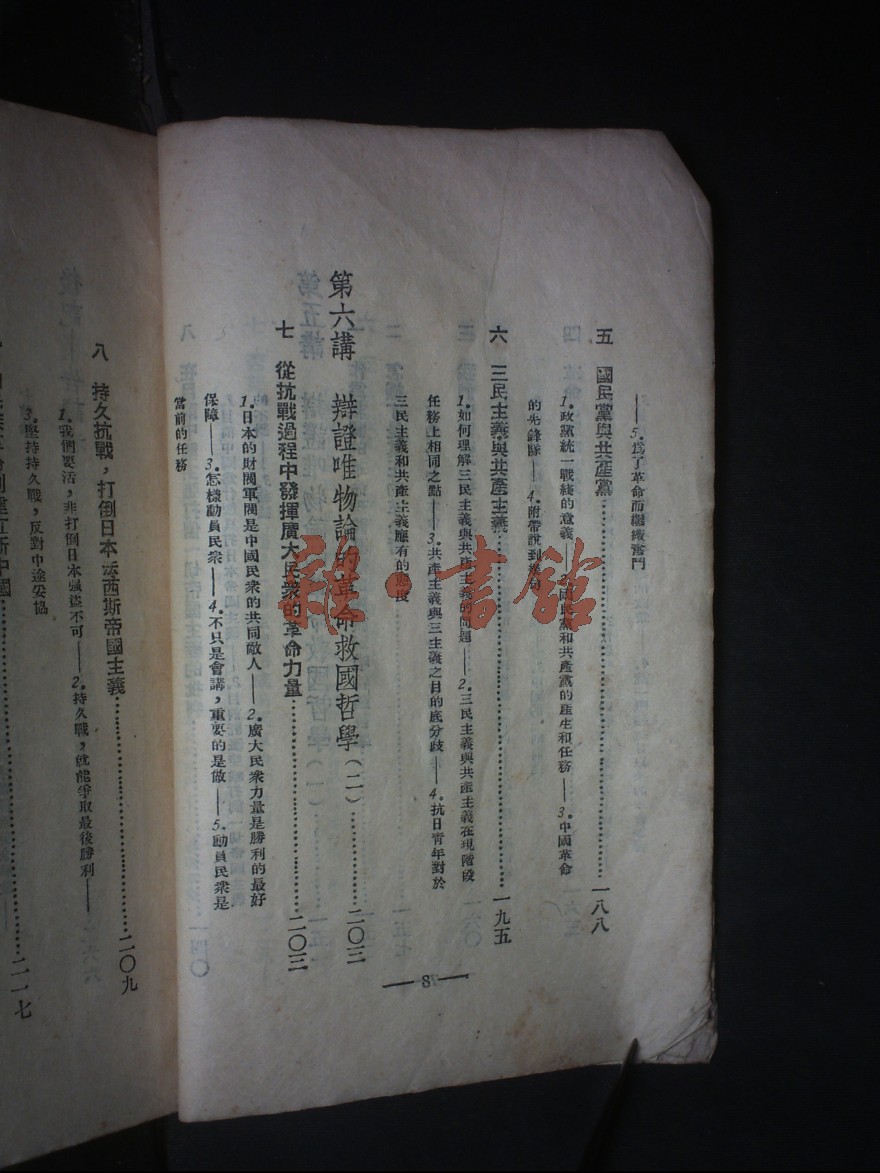 ——5.爲了革命而繼續奮鬥
五 國民黨與共產黨……一八八
1.政黨統一戰綫的意義——2.國民黨和共產黨的產生和任務——3.中國革命
的先鋒隊——4.附帶說到
六 三民主義與共產主義……一九五
1.如何理解三民主義與共產主義的問題——2.三民主義與共產主義在現階段
任務上相同之點——3.共產主義與三主義之目的底分歧——4.抗日青年對於
三民主義和共產主義應有的態度
第六講 辯證唯物論的革命救國哲學(二)……二〇三
七 從抗戰過程中發揮廣大民衆的革命力量……二〇三
1.日本的財閥軍閥是中國民衆的共同敵人——2.廣大民衆力量是勝利的最好
保障——3.怎樣動員民衆——4.不只是會講,重要的是做——5.動員民衆是
當前的任務
—8—
八 持久抗戰,打倒日本法西斯帝國主義……二〇九
1.我們要活,非打倒日本强盜不可——2.持久戰,就能爭取最後勝利——
3.堅持持久戰,反對中途妥協
建立新中國……二一七
書館